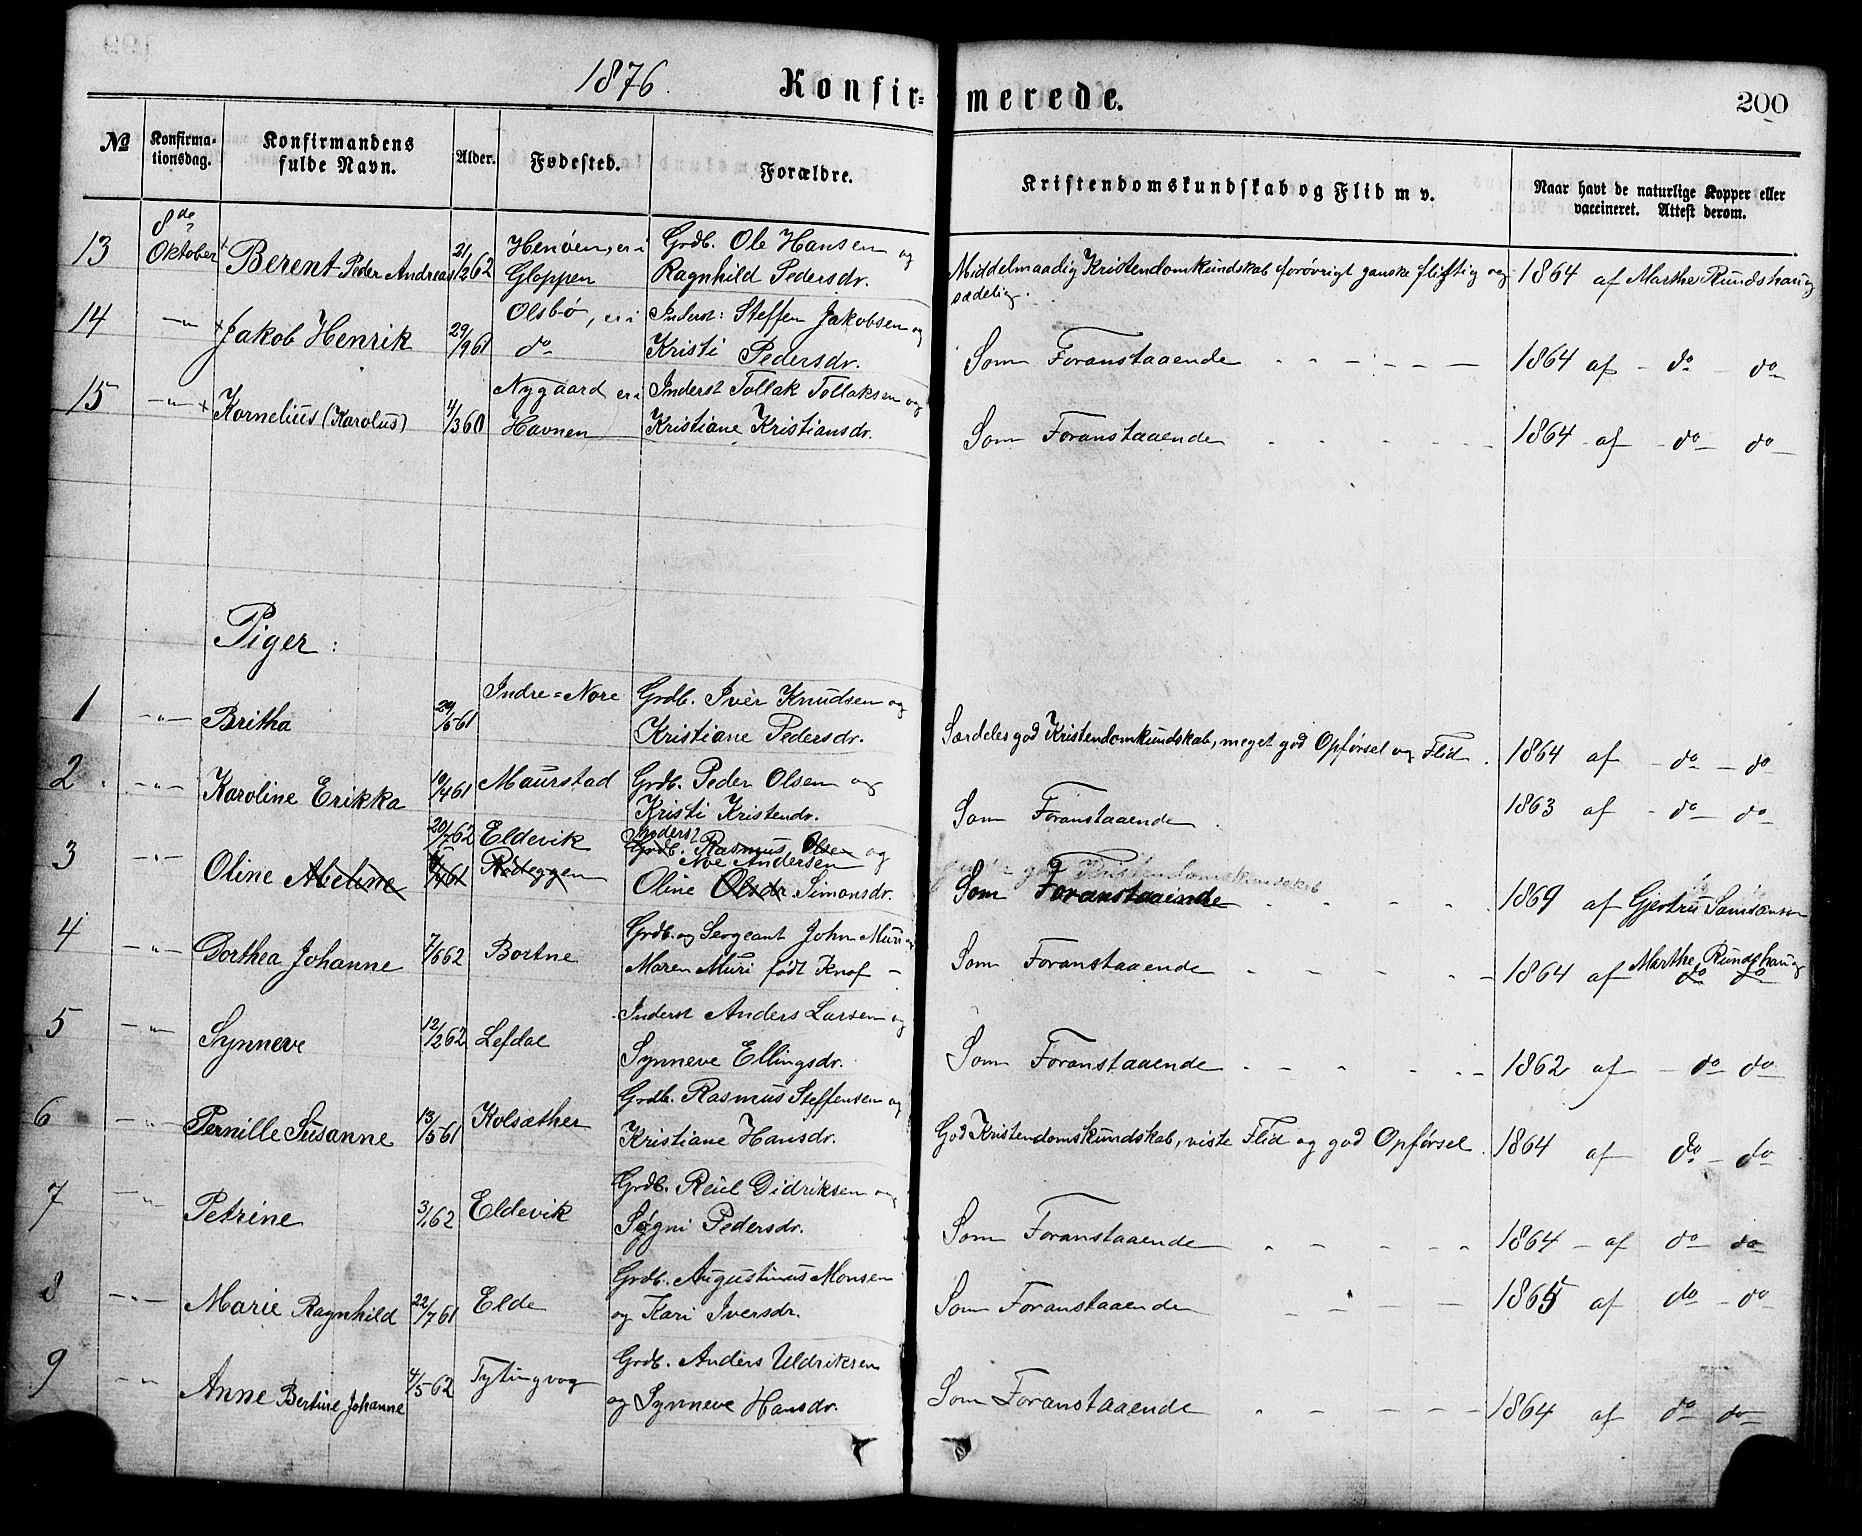 1876.
Konfir-
merede.
200
№
Konfirma-
tionsdag.
Konfirmandens
fulde Navn.
Alder.
Fødested.
Forældre.
Kristendomskundskab og Flid m v.
Naar havt de naturlige Kopper eller
vaccineret. Attest derom.
8de
13 Oktober + Berent Peder Andreas 21/12 62 Henøen, er i Grdb. Ole Hansen og
Gloppen Ragnhild Pedersdr.
Middelmaadig Kristendomkundskab forøvrigt ganske flittig og
sædelig. 1864 af Marthe Rundshaug
14 -"- + Jakob Henrik 29/9 61 Olsbø, er i Inderst: Steffen Jakobsen og
do Kristi Pedersdr.
Som Foranstaaende - - - - - 1864 af - do - do
15 -"- + Kornelius (Karolus) 4/3 60 Nygaard er i Inderst Tollak Tollaksen og
Havnen Kristiane Kristiansdr.
Som Foranstaaende - - - - - 1864 - af - do do
Piger:
1 -"- Britha 29/5 61 Indre=Nore Grdb. Iver Knudsen og
Kristiane Pedersdr.
Særdeles god Kristendomkundskab, meget god Opførsel og Flid. 1864 af - do - do
2 -"- Karoline Erikka 19/4 61 Maurstad Grdb. Peder Olsen og
Kristi Kristendr.
Som Foranstaaende 1863 af - do - do
20/7 62 Eldevik Inderst
3 -"- Oline Abeline /4 61 Rødeggen Grdb. Rasmus Olsen og
Noe Andersen
Oline Olsdr Simonsdr.
god Kristendomskundskab
Som Foranstaaende - - - - 1869 af Gjertru
4 -"- Dorthea Johanne 7/6 62 Bortne Grdb. og Sergeant John Muri og
Maren Muri født Knof -
Som Foranstaaende - - - - - 1864 af Marthe Rundshaug
do do
5 -"- Synneve 12/2 62 Lefdal Inderst Anders Larsen og
Synneve Ellingsdr.
Som Foranstaaende - - - - - 1862 af - do do
6 -"- Pernille Susanne 13/5 61 Kolsæther Grdb. Rasmus Steffensen og
Kristiane Hansdr.
God Kristendomskundskab, viste Flid og god Opførsel. 1864 af do - do
7 -"- Petrine 3/1 62 Eldevik Grdb. Reül Didriksen og
Søgni Pedersdr.
Som Foranstaaende - - - - - 1864 - af do - do
8 -"- Marie Ragnhild 22/7 61 Elde Grdb. Augustinus Monsen
og Kari Iversdr.
Som Foranstaaende - - - - 1865 af do - do
9 -"- Anne Bertine Johanne 4/5 62 Tytingvog Grdb. Anders Uldriksen
og Synneve Hansdr.
Som Foranstaaende - - - - - 1864 af do do